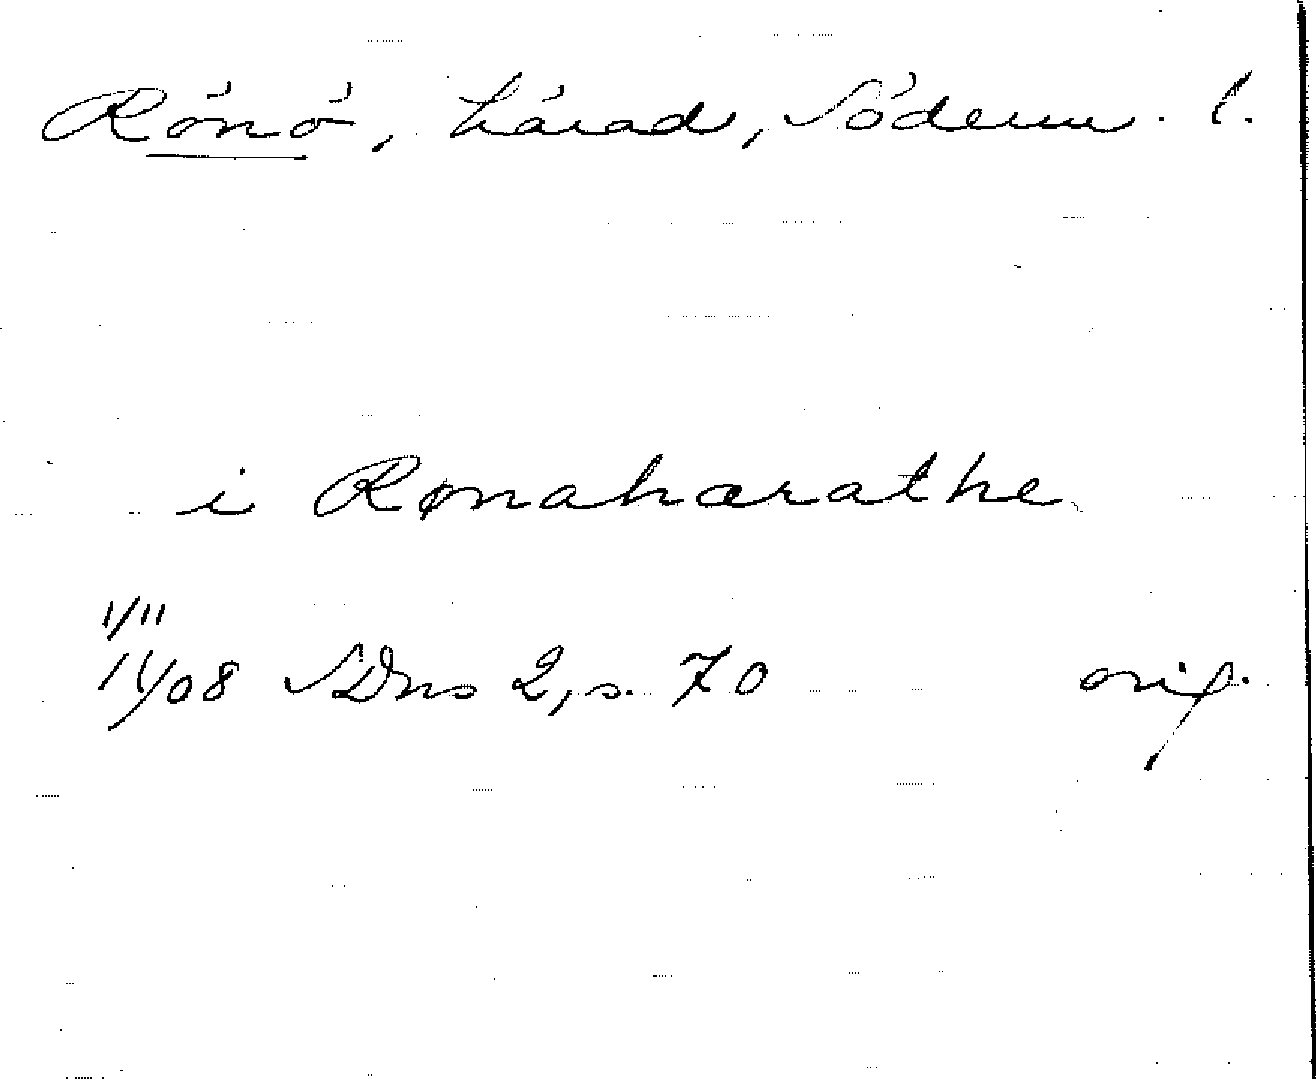 Rönö, härad, Söderm. l.
i Rønahærathe
1/11
14/08 SDns 2, s. 70 orig.